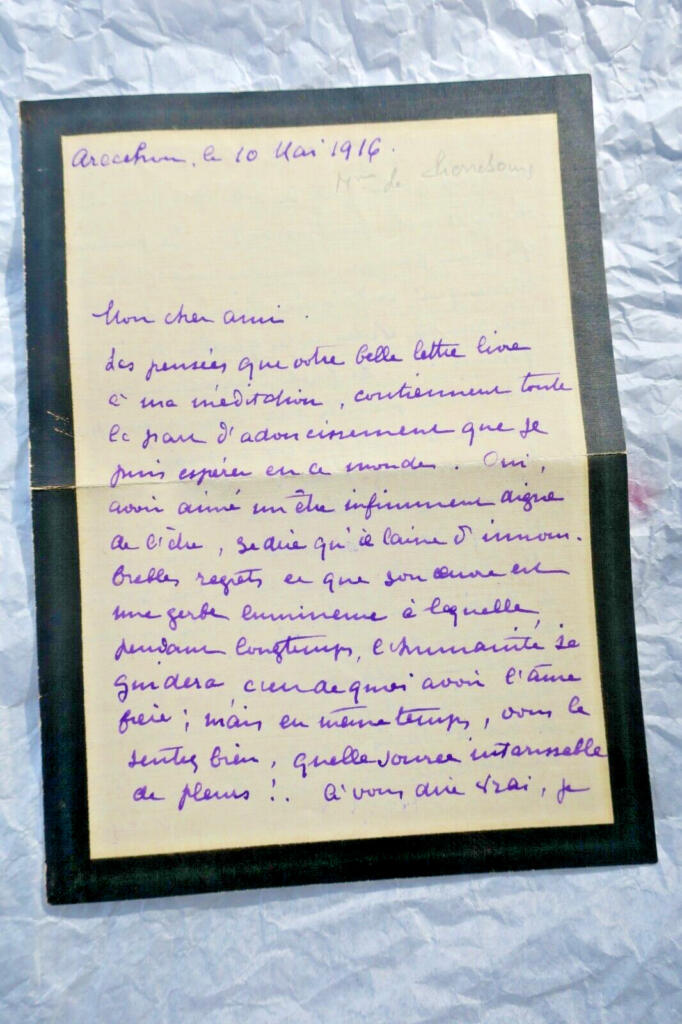 Arcachon, le 10 Mai 1916.
Mme de
Mon cher ami.
Les pensées que votre belle lettre livre
à ma méditation, contiennent toute
la part d'adoucissement que je
puis espérer en ce monde. Oui,
avoir aimé un être infiniment digne
de l'être, se dire qu'il laisse d'innom-
brables regrets et que son œuvre est
une gerbe lumineuse à laquelle,
pendant longtemps, l'humanité se
guidera c'est de quoi avoir l'âme
fière ; mais en même temps, vous le
sentez bien, quelle source intarissable
de pleurs !. À vous dire vrai, je